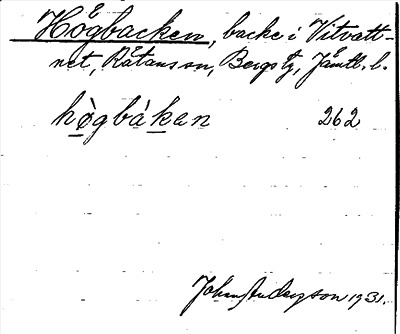 Högbacken, backe i Vitvatt-
net, Rätans sn, Bergs tg, Jämtl. l.
hògbákan 262
Johan Anderson 1931.